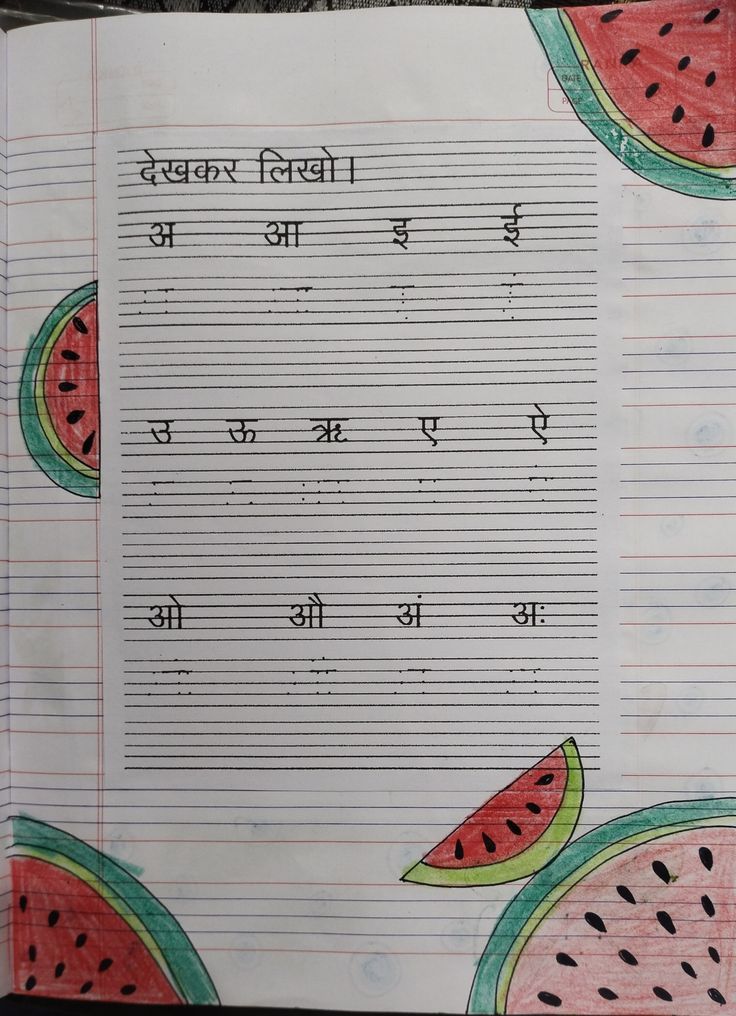 DATE
PAGE
देखकर लिखो।
अ आ इ ई
उ ऊ ऋ ए ऐ
ओ औ अं अः